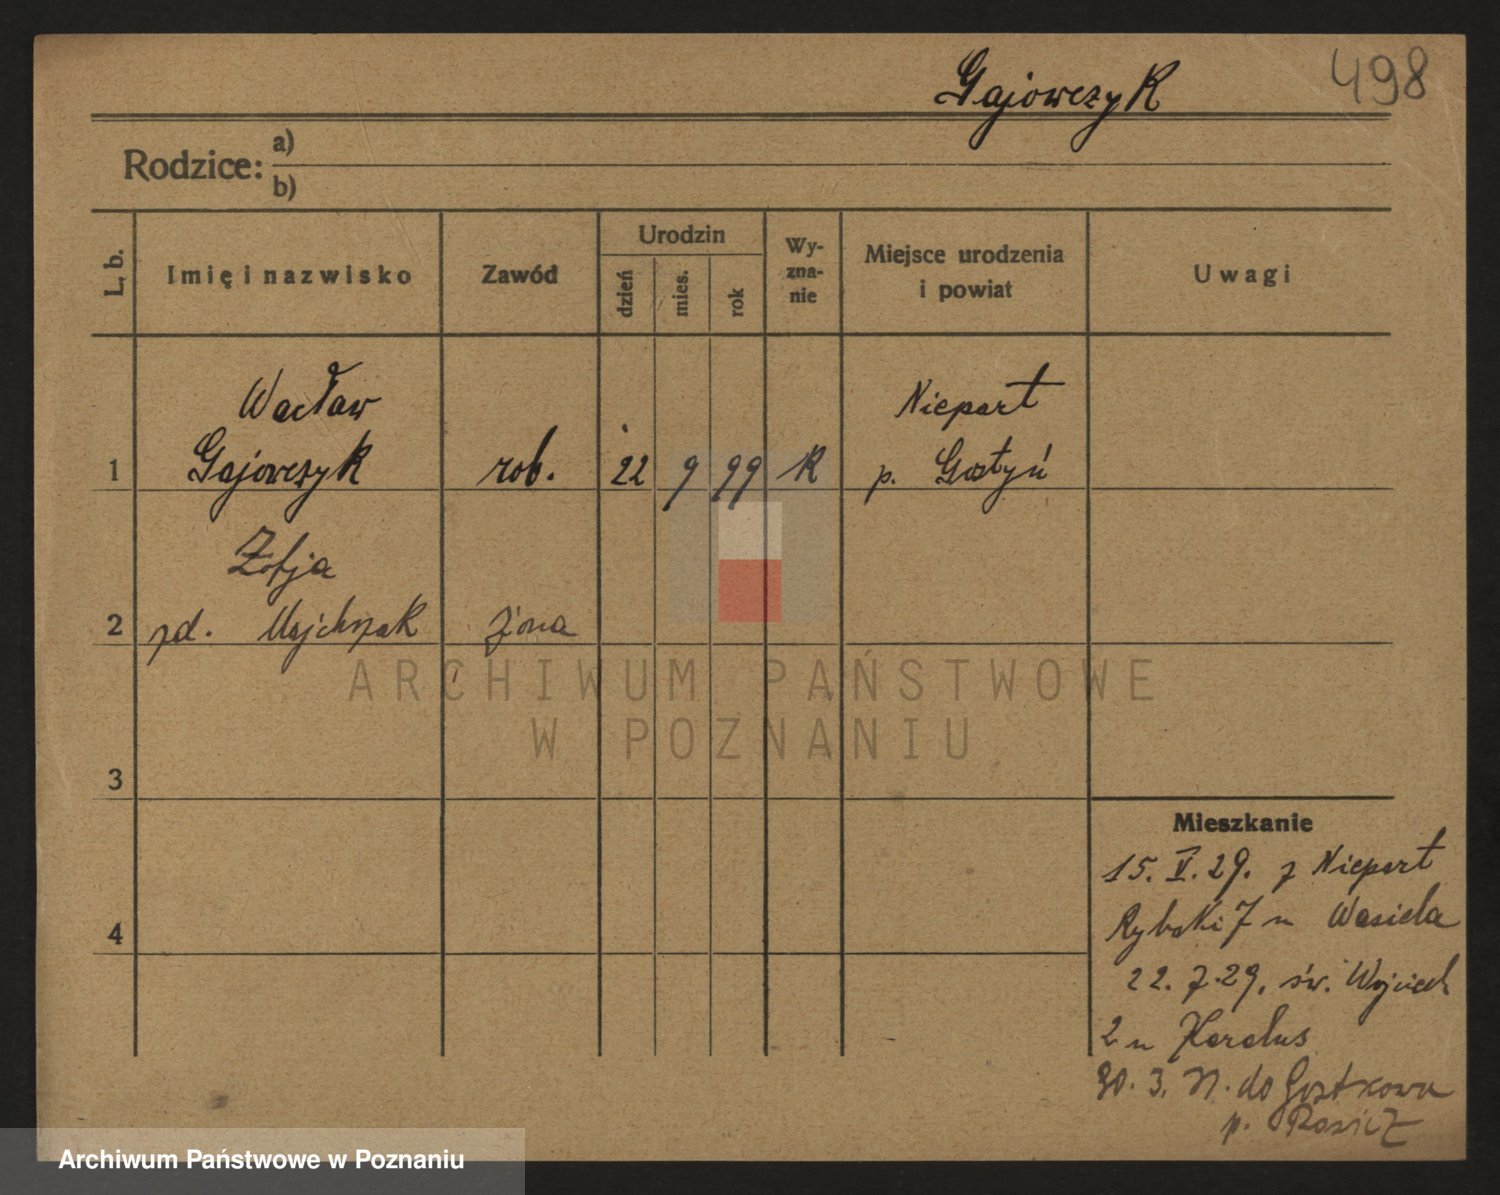 Gajowczyk
498
Rodzice: a)
b)
L. b.
Imię i nazwisko
Zawód
Urodzin
dzień
mies.
rok
Wy-
zna-
nie
Miejsce urodzenia
i powiat
Uwagi
Wacław
Niepart
1 Gajowczyk rob. 22 9 99 K p. Gostyń
Zofja
2 zd. Majchrzak żona
3
4
Mieszkanie
15. V. 29. z Niepart
Rybaki 7 u Wasiela
22. 7. 29. św. Wojciech
2 u Haralus
30. 3. 31. do Gostkowa
p. Rawicz
ARCHIWUM PAŃSTWOWE
W POZNANIU
Archiwum Państwowe w Poznaniu